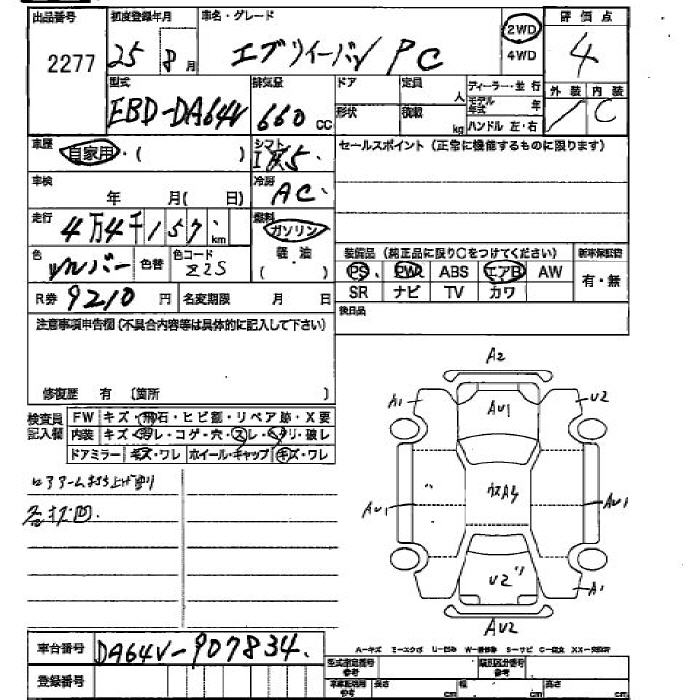 出品番号 初度登録年月 車名・グレード 評価点
2277 25 8月 エブリイーバン PC 2WD 4WD 4
型式 排気量 ドア 定員 人 ディーラー・並 行 外装 内装
EBD-DA64V 660 CC 形状 積載 kg モデル年式 年 C
ハンドル 左・右
車歴 自家用・( ) シフト 5 セールスポイント (正常に機能するものに限ります)
車検 年 月( 日) 冷房 AC
走行 4万4千157 km 燃料 ガソリン 軽油 ( )
色 シルバー 色替 色コード Z2S 装備品 (純正品に限り○をつけてください) 新車保証書
PS、 PW ABS エアB AW 有・無
R券 9210 円 名変期限 月 日 SR ナビ TV カワ
注意事項申告欄(不具合内容等は具体的に記入して下さい) 後日品
修復歴 有 〔箇所 〕
検査員記入欄 FW キズ・飛石・ヒビ割・リペア跡・X要
内装 キズ・汚レ・コゲ・穴・スレ・ヘリ・破レ
ドアミラー キズ・ワレ ホイール・キャップ キズ・ワレ
A2
A1 AU1 U2
AU1 AU1
U2 A1
AU2
車台番号 DA64V-907834
A-キズ E-エクボ U-凹み W-補修跡 S-サビ C-腐食 XX-交換済
登録番号 型式指定番号 参考 類別区分番号 参考
長さ cm 幅 cm 高さ cm